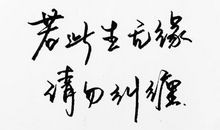 若此生无缘
请勿纠缠